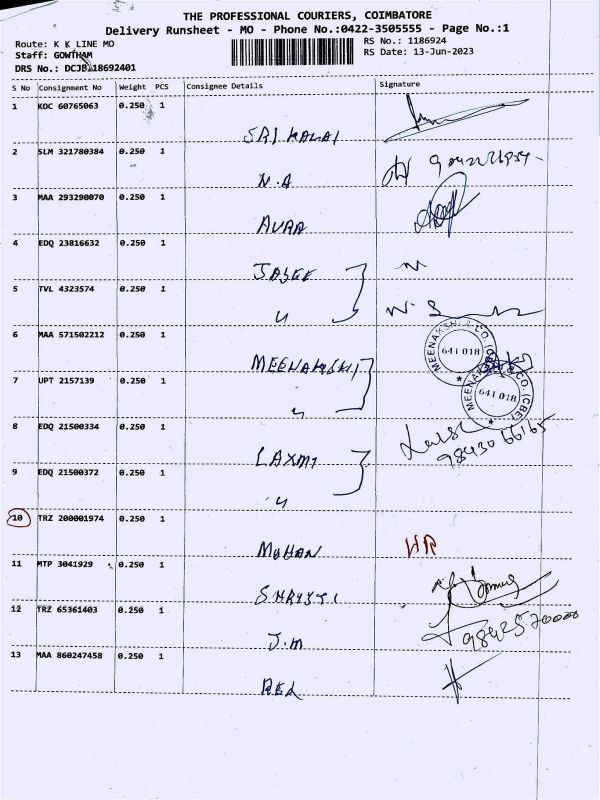 THE PROFESSIONAL COURIERS, COIMBATORE
Delivery Runsheet - MO - Phone No.:0422-3505555 - Page No.:1
Route: K K LINE MO
RS No.: 1186924
Staff: GOWTHAM
RS Date: 13-Jun-2023
DRS No.: DCJBA18692401
S No Consignment No Weight PCS Consignee Details Signature
1 KOC 60765063 0.250 1
SRI KALAI
2 SLM 321780384 0.250 1
N.A
3 MAA 293290070 0.250 1
AURA
4 EDQ 23816632 0.250 1
5 TVL 4323574 0.250 1
6 MAA 571502212 0.250 1
MEENAKSHI
MEENAKSHI & CO. (CBE) 641 018
7 UPT 2157139 0.250 1
MEENAKSHI & CO. (CBE) 641 018
8 EDQ 21500334 0.250 1
LAXMI
9843066165
9 EDQ 21500372 0.250 1
10 TRZ 200001974 0.250 1
MOHAN
11 MTP 3041929 0.250 1
12 TRZ 65361403 0.250 1
J.M
9842570000
13 MAA 860247458 0.250 1